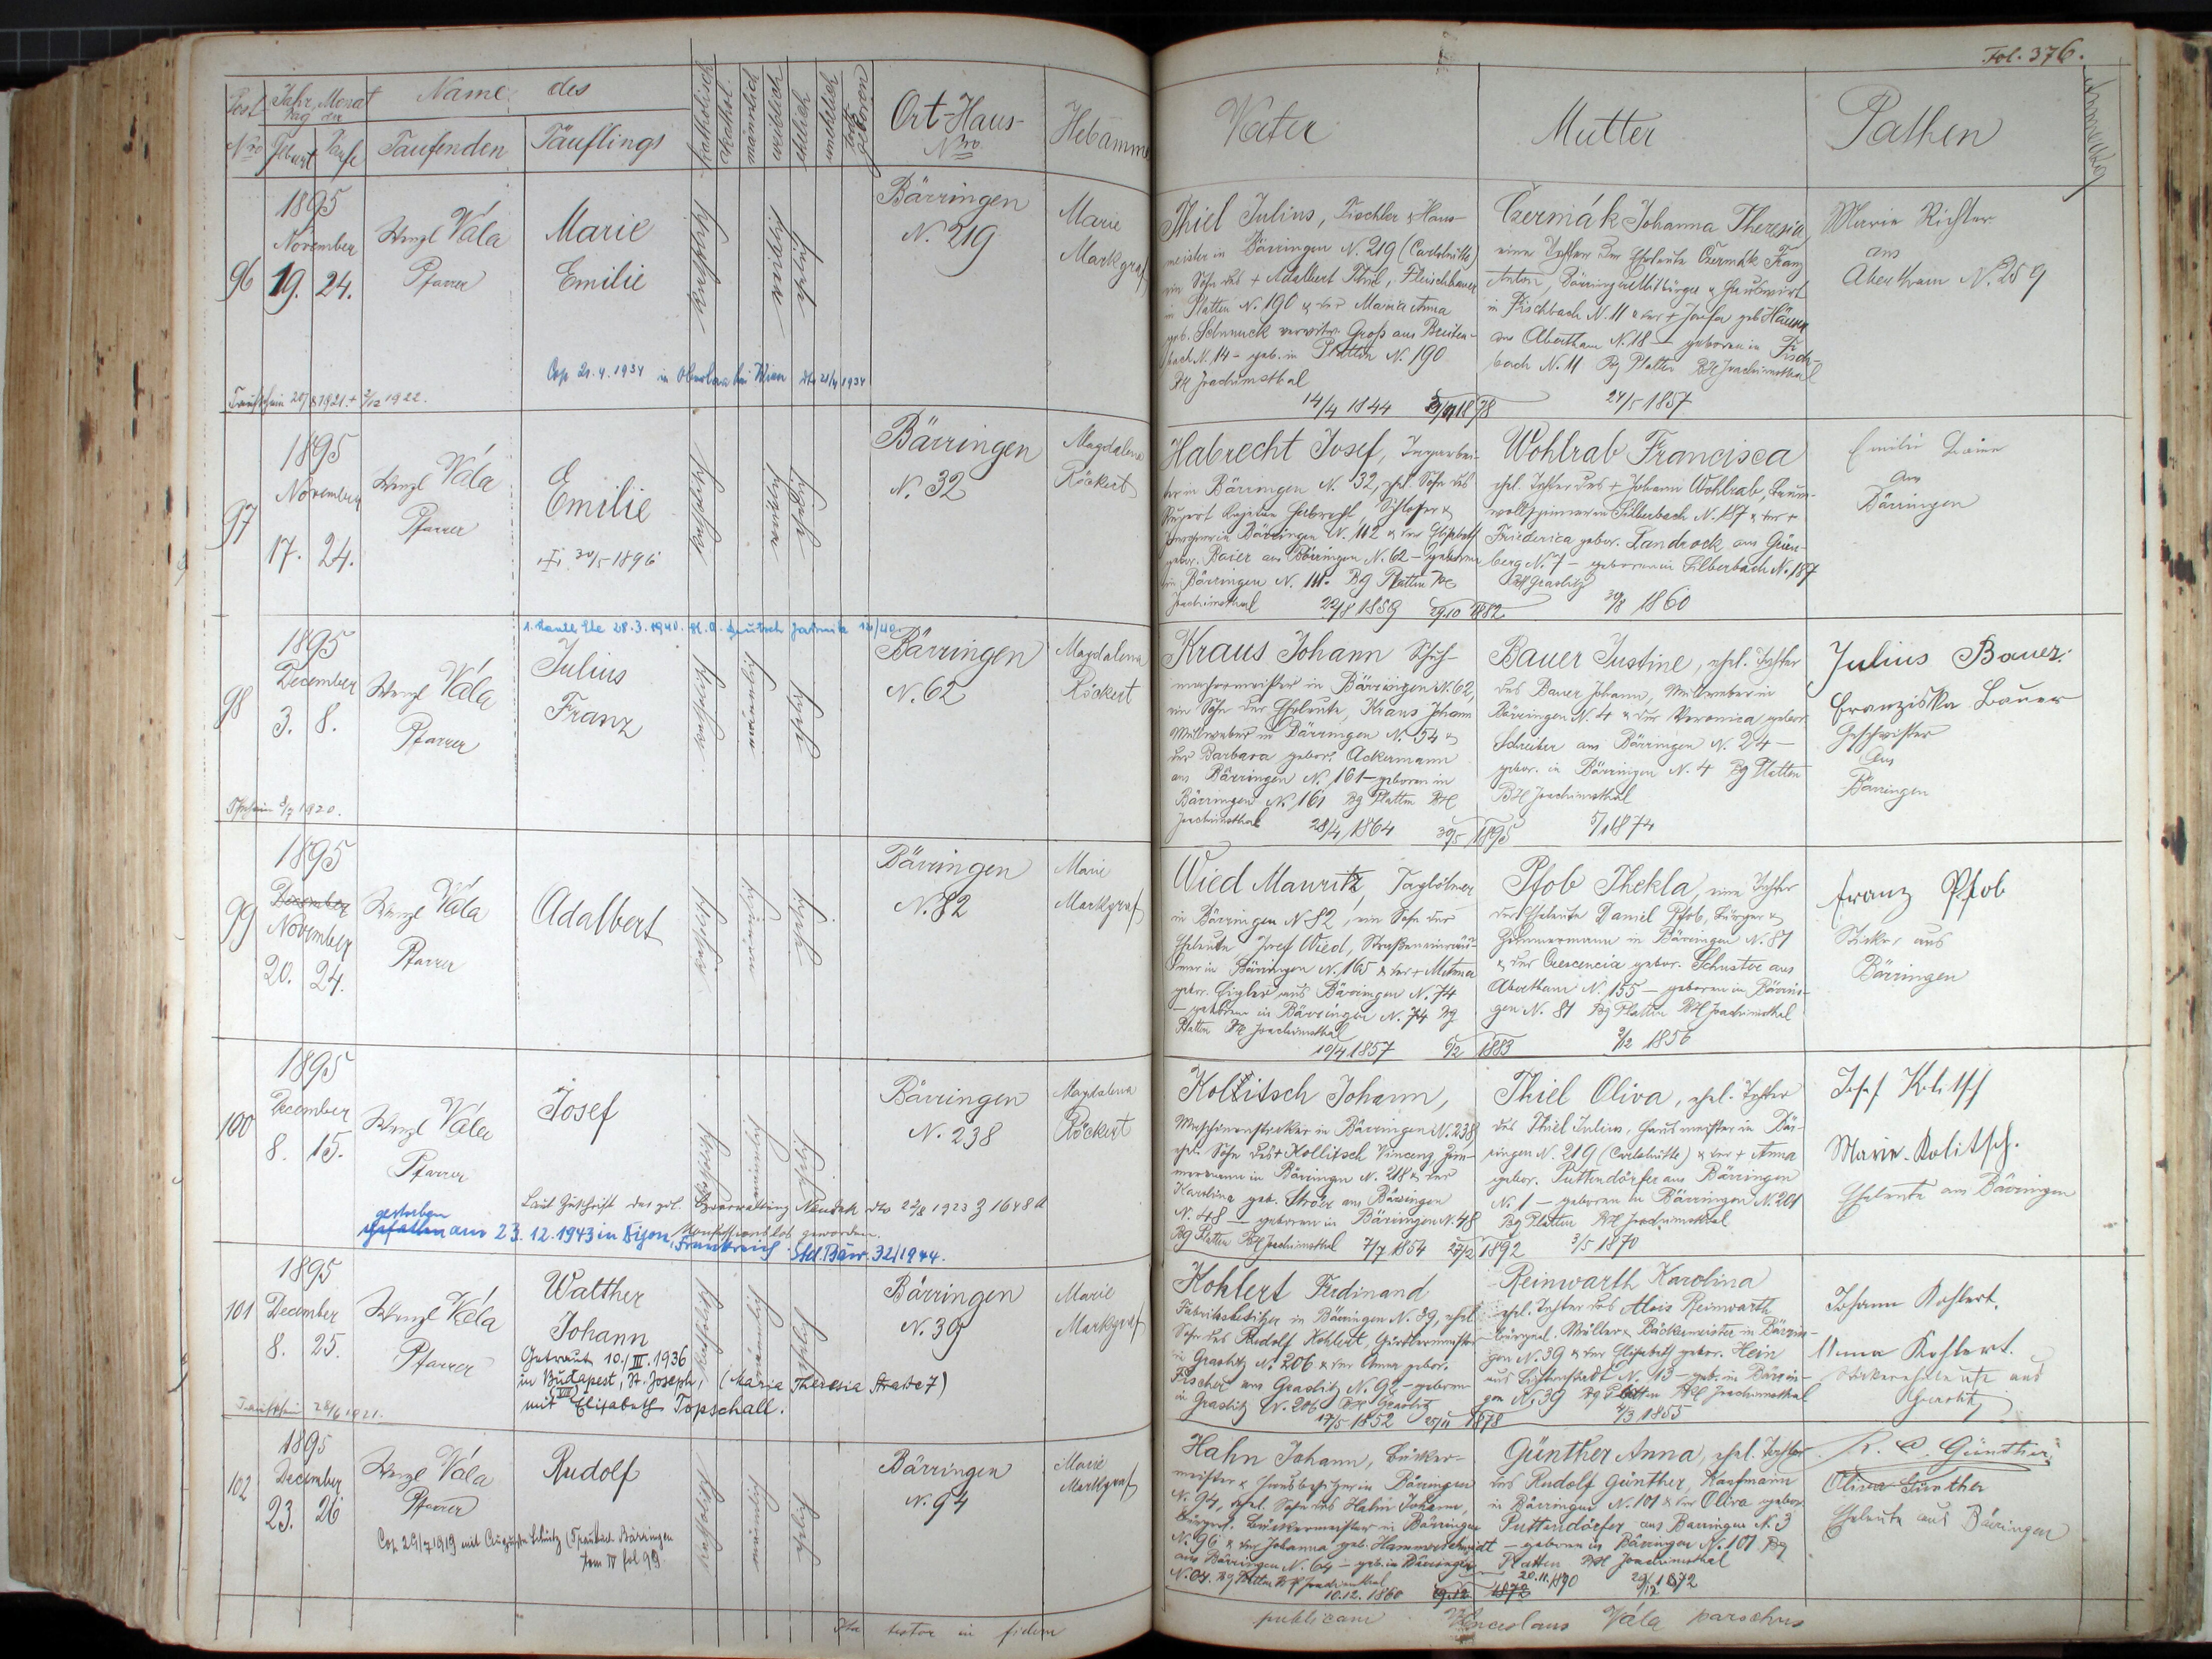 Fol. 376.
Post Nro
Jahr, Monat
Tag der
Geburt Taufe
Name des
Taufenden
Täuflings
katholisch
akathol.
männlich
weiblich
ehelich
unehelich
todt geboren
Ort-Haus-
Nro.
Hebamme
Vater
Mutter
Pathen
96
1895
November
19. 24.
Wenzl Vála
Pfarrer
Marie
Emilie
katholisch
weiblich
ehelich
Bärringen
N. 219
Marie
Markgraf
Cop 21.4.1934 in Oberlaa bei Wien dto 21/4 1934
Taufschein
1922.
Thiel Julius, Tischler & Haus-
meister in Bärringen N. 219 (Carlshütte)
ein Sohn des + Adalbert Thiel, Fleischhauer
in Platten N. 190 & der Maria Anna
geb. Schmuck verwitw. Groß aus Breiten-
bach N. 14 - geb. in Platten N. 190
BH Joachimsthal
14/4 1844
Czermák Johanna Theresia,
eine Tochter der Eheleute Czermák Franz
Anton, Bürger & Hauswirt
in Fischbach N. 11 & der + Josefa geb.
aus Abertham N. 18 - geboren in Fisch-
bach N. 11 Bg Platten BH Joachimsthal
24/5 1857
Marie Richter
aus
Abertham N. 259
97
1895
November
17. 24.
Wenzl Vála
Pfarrer
Emilie
+ 30/5 1896
katholisch
weiblich
ehelich
Bärringen
N. 32
Magdalena
Röckert
Habrecht Josef,
in Bärringen N. 32, ehel. Sohn des
Habrecht, Schlosser &
in Bärringen N. 112 & der Elisabeth
gebor. Baier aus Bärringen N. 62 - geboren
in Bärringen N. 111. Bg Platten BH
Joachimsthal 22/8 1859 29.10 1882
Wohlrab Francisca
ehel. Tochter des + Johann Wohlrab, Baum-
wollspinner in Silberbach N. 187 & der +
Friederica gebor. Landrock aus Grün-
berg N. 7 - geboren in Silberbach N. 187
BH Graslitz
1860
Emilie
aus
Bärringen
98
1895
December
3. 8.
Wenzl Vála
Pfarrer
Julius
Franz
28.3.1940.
katholisch
männlich
ehelich
Bärringen
N. 62
Magdalena
Röckert
1920.
Kraus Johann Schuh-
machermeister in Bärringen N. 62,
ein Sohn der Eheleute, Kraus Johann
in Bärringen N. 54 &
der Barbara gebor. Ackermann
aus Bärringen N. 161 - geboren in
Bärringen N. 161 Bg Platten BH
Joachimsthal 28/4 1864 30/5 1895
Bauer Justine, ehel. Tochter
des Bauer Johann, in
Bärringen N. 4 & der Veronica gebor.
Schreiber aus Bärringen N. 24 -
gebor. in Bärringen N. 4 Bg Platten
BH Joachimsthal
5/1 1874
Julius Bauer
Franziska Bauer
Geschwister
aus
Bärringen
99
1895
December
November
20. 24.
Wenzl Vála
Pfarrer
Adalbert
katholisch
männlich
ehelich
Bärringen
N. 82
Marie
Markgraf
Wied Mauritz, Taglöhner
in Bärringen N. 82, ein Sohn der
Eheleute Josef Wied,
in Bärringen N. 165 & der +
gebor. Zigler aus Bärringen N. 74
- geboren in Bärringen N. 74 Bg
Platten BH Joachimsthal
19/4 1857 6/2 1883
Pfob Thekla, eine Tochter
der Eheleute Daniel Pfob, Bürger &
Zimmermann in Bärringen N. 81
& der Crescencia gebor. Schuster aus
Abertham N. 155 - geboren in Bärrin-
gen N. 81 Bg Platten BH Joachimsthal
1856
Franz Pfob
aus
Bärringen
100
1895
December
8. 15.
Wenzl Vála
Pfarrer
Josef
katholisch
männlich
ehelich
Bärringen
N. 238
Magdalena
Röckert
Laut Zuschrift der pol. Bezverwaltung Neudek dto 22/8 1923 Z 16484
konfessionslos geworden.
gestorben
gefallen am 23.12.1943 in Dijon, Frankreich. Std. Bärr. 32/1944.
Kollitsch Johann,
Maschinensticker in Bärringen N. 238
ehel. Sohn des + Kollitsch Vincenz, Zim-
mermann in Bärringen N. 218 & der
Karolina geb. Ströer aus Bärringen
N. 48 - geboren in Bärringen N. 48
Bg Platten BH Joachimsthal 7/7 1854 23/2 1892
Thiel Oliva, ehel. Tochter
des Thiel Julius, Hausmeister in Bär-
ringen N. 219 (Carlshütte) & der + Anna
gebor. Puttendörfer aus Bärringen
N. 1 - geboren in Bärringen N. 201
Bg Platten BH Joachimsthal
3/5 1870
Josef Kolitsch
Marie Kolitsch.
Eheleute aus Bärringen
101
1895
December
8. 25.
Wenzl Vála
Pfarrer
Walther
Johann
Getraut 10./III. 1936
in Budapest, St. Joseph, (Maria Theresia Straße 7)
(VIII)
mit Elisabeth Topschall.
Taufschein 1921.
katholisch
männlich
ehelich
Bärringen
N. 39
Marie
Markgraf
Kohlert Ferdinand
Fabriksbesitzer in Bärringen N. 39, ehel.
Sohn des Rudolf Kohlert, Gürtlermeister
in Graslitz N. 206 & der Anna gebor.
Fischer aus Graslitz N. - geboren
in Graslitz N. 206 BH Graslitz
17/5 1852 25/11 1878
Reinwarth Karolina
ehel. Tochter des Alois Reinwarth
bürgerl. Müller & Bäckermeister in Bärrin-
gen N. 39 & der Elisabeth gebor. Hein
aus Lichtenstadt N. 13 - geb. in Bärrin-
gen N. 39 Bg Platten BH Joachimsthal
4/3 1855
Johann Kohlert.
Anna Kohlert.
aus
Graslitz
102
1895
December
23. 26
Wenzl Vála
Pfarrer
Rudolf
Cop. 29/7 1919 mit Auguste Schütz (Trauhsch. Bärringen
tom IV fol 99
katholisch
männlich
ehelich
Bärringen
N. 94
Marie
Markgraf
Hahn Johann, Bäcker-
meister & Hausbesitzer in Bärringen
N. 94, ehel. Sohn des Hahn Johann,
bürgerl. Bäckermeister in Bärringen
N. 96 & der Johanna geb. Hammerschmidt
aus Bärringen N. 64 - geb. in Bärringen
Bg Platten BH Joachimsthal
10.12.1860 1872
Günther Anna, ehel. Tochter
des Rudolf Günther, Kaufmann
in Bärringen N. 101 & der Oliva gebor.
Puttendörfer aus Bärringen N. 3
- geboren in Bärringen N. 101 Bg
Platten BH Joachimsthal
20.11.1890 1872
R. A. Günther
Oliva Günther
Eheleute aus Bärringen
Ita testor in fidem
publicam Venceslaus Vála parochus